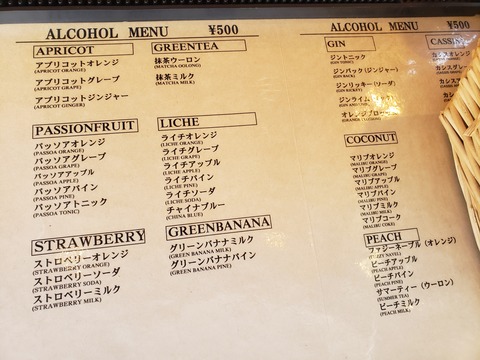 ALCOHOL MENU ¥500
APRICOT
アプリコットオレンジ
(APRICOT ORANGE)
アプリコットグレープ
(APRICOT GRAPE)
アプリコットジンジャー
(APRICOT GINGER)
GREENTEA
抹茶ウーロン
(MATCHA OOLONG)
抹茶ミルク
(MATCHA MILK)
PASSIONFRUIT
パッソアオレンジ
(PASSOA ORANGE)
パッソアグレープ
(PASSOA GRAPE)
パッソアアップル
(PASSOA APPLE)
パッソアパイン
(PASSOA PINE)
パッソアトニック
(PASSOA TONIC)
LICHE
ライチオレンジ
(LICHE ORANGE)
ライチグレープ
(LICHE GRAPE)
ライチアップル
(LICHE APPLE)
ライチパイン
(LICHE PINE)
ライチソーダ
(LICHE SODA)
チャイナブルー
(CHINA BLUE)
STRAWBERRY
ストロベリーオレンジ
(STRAWBERRY ORANGE)
ストロベリーソーダ
(STRAWBERRY SODA)
ストロベリーミルク
(STRAWBERRY MILK)
GREENBANANA
グリーンバナナミルク
(GREEN BANANA MILK)
グリーンバナナパイン
(GREEN BANANA PINE)
ALCOHOL MENU ¥500
GIN
ジントニック
(GIN TONIC)
ジンバック(ジンジャー)
(GIN BACK)
ジンリッキー(ソーダ)
(GIN RICKEY)
ジンライム
オレンジブロ
CASSI
カシスオレン
カシスグレ
COCONUT
マリブオレンジ
(MALIBU ORANGE)
マリブグレープ
(MALIBU GRAPE)
マリブアップル
(MALIBU APPLE)
マリブパイン
(MALIBU PINE)
マリブミルク
(MALIBU MILK)
マリブコーク
(MALIBU COKE)
PEACH
ファジーネーブル(オレンジ)
(FUZZY NAVEL)
ピーチアップル
(PEACH APPLE)
ピーチパイン
(PEACH PINE)
サマーティー(ウーロン)
(SUMMER TEA)
ピーチミルク
(PEACH MILK)